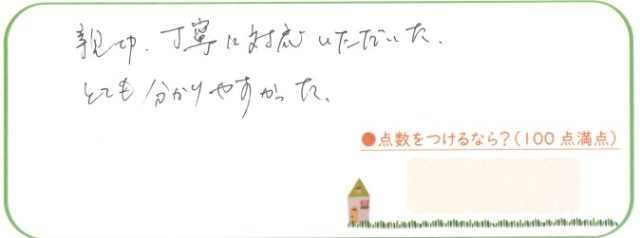 親切、丁寧に対応いただいた。
とても分かりやすかった。
●点数をつけるなら?(100点満点)